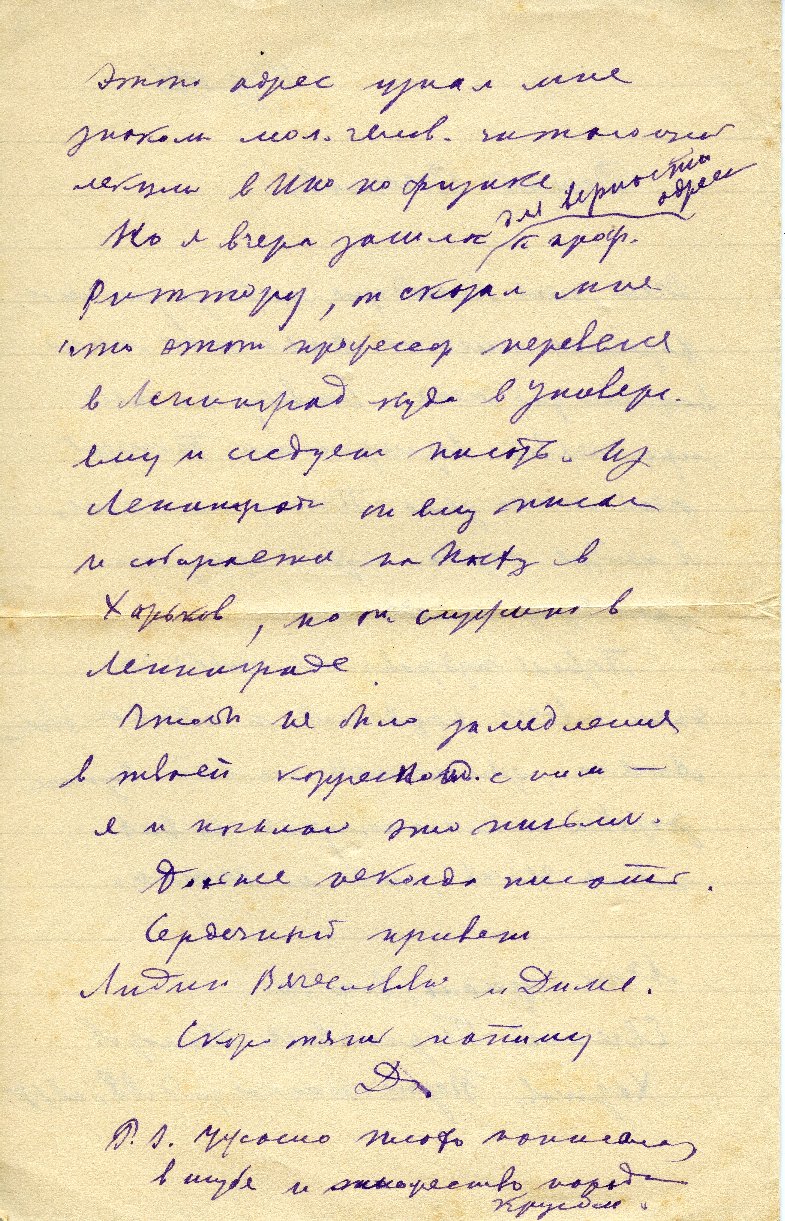 Этот адрес узнал мне
знаком. мол. челов. читающий
лекции в ИНО по физике
Но я вчера зашел к проф.
для верности
адреса
Риттеру, он сказал мне
что этот профессор перевелся
в Ленинград куда в Универс.
ему и следует писать. Из
Ленинграда он ему писал
и собирается на в
Харьков, но он служит в
Ленинграде.
Чтобы не было замедления
в твоей корреспонд. с ним —
я и посылаю это письмо.
Больше некогда писать.
Сердечный привет
Лидии Вячеславовне и Диме.
Скоро опять напишу
Д
P.S. Ужасно плохо написала
в шубе и множество народа
кругом.